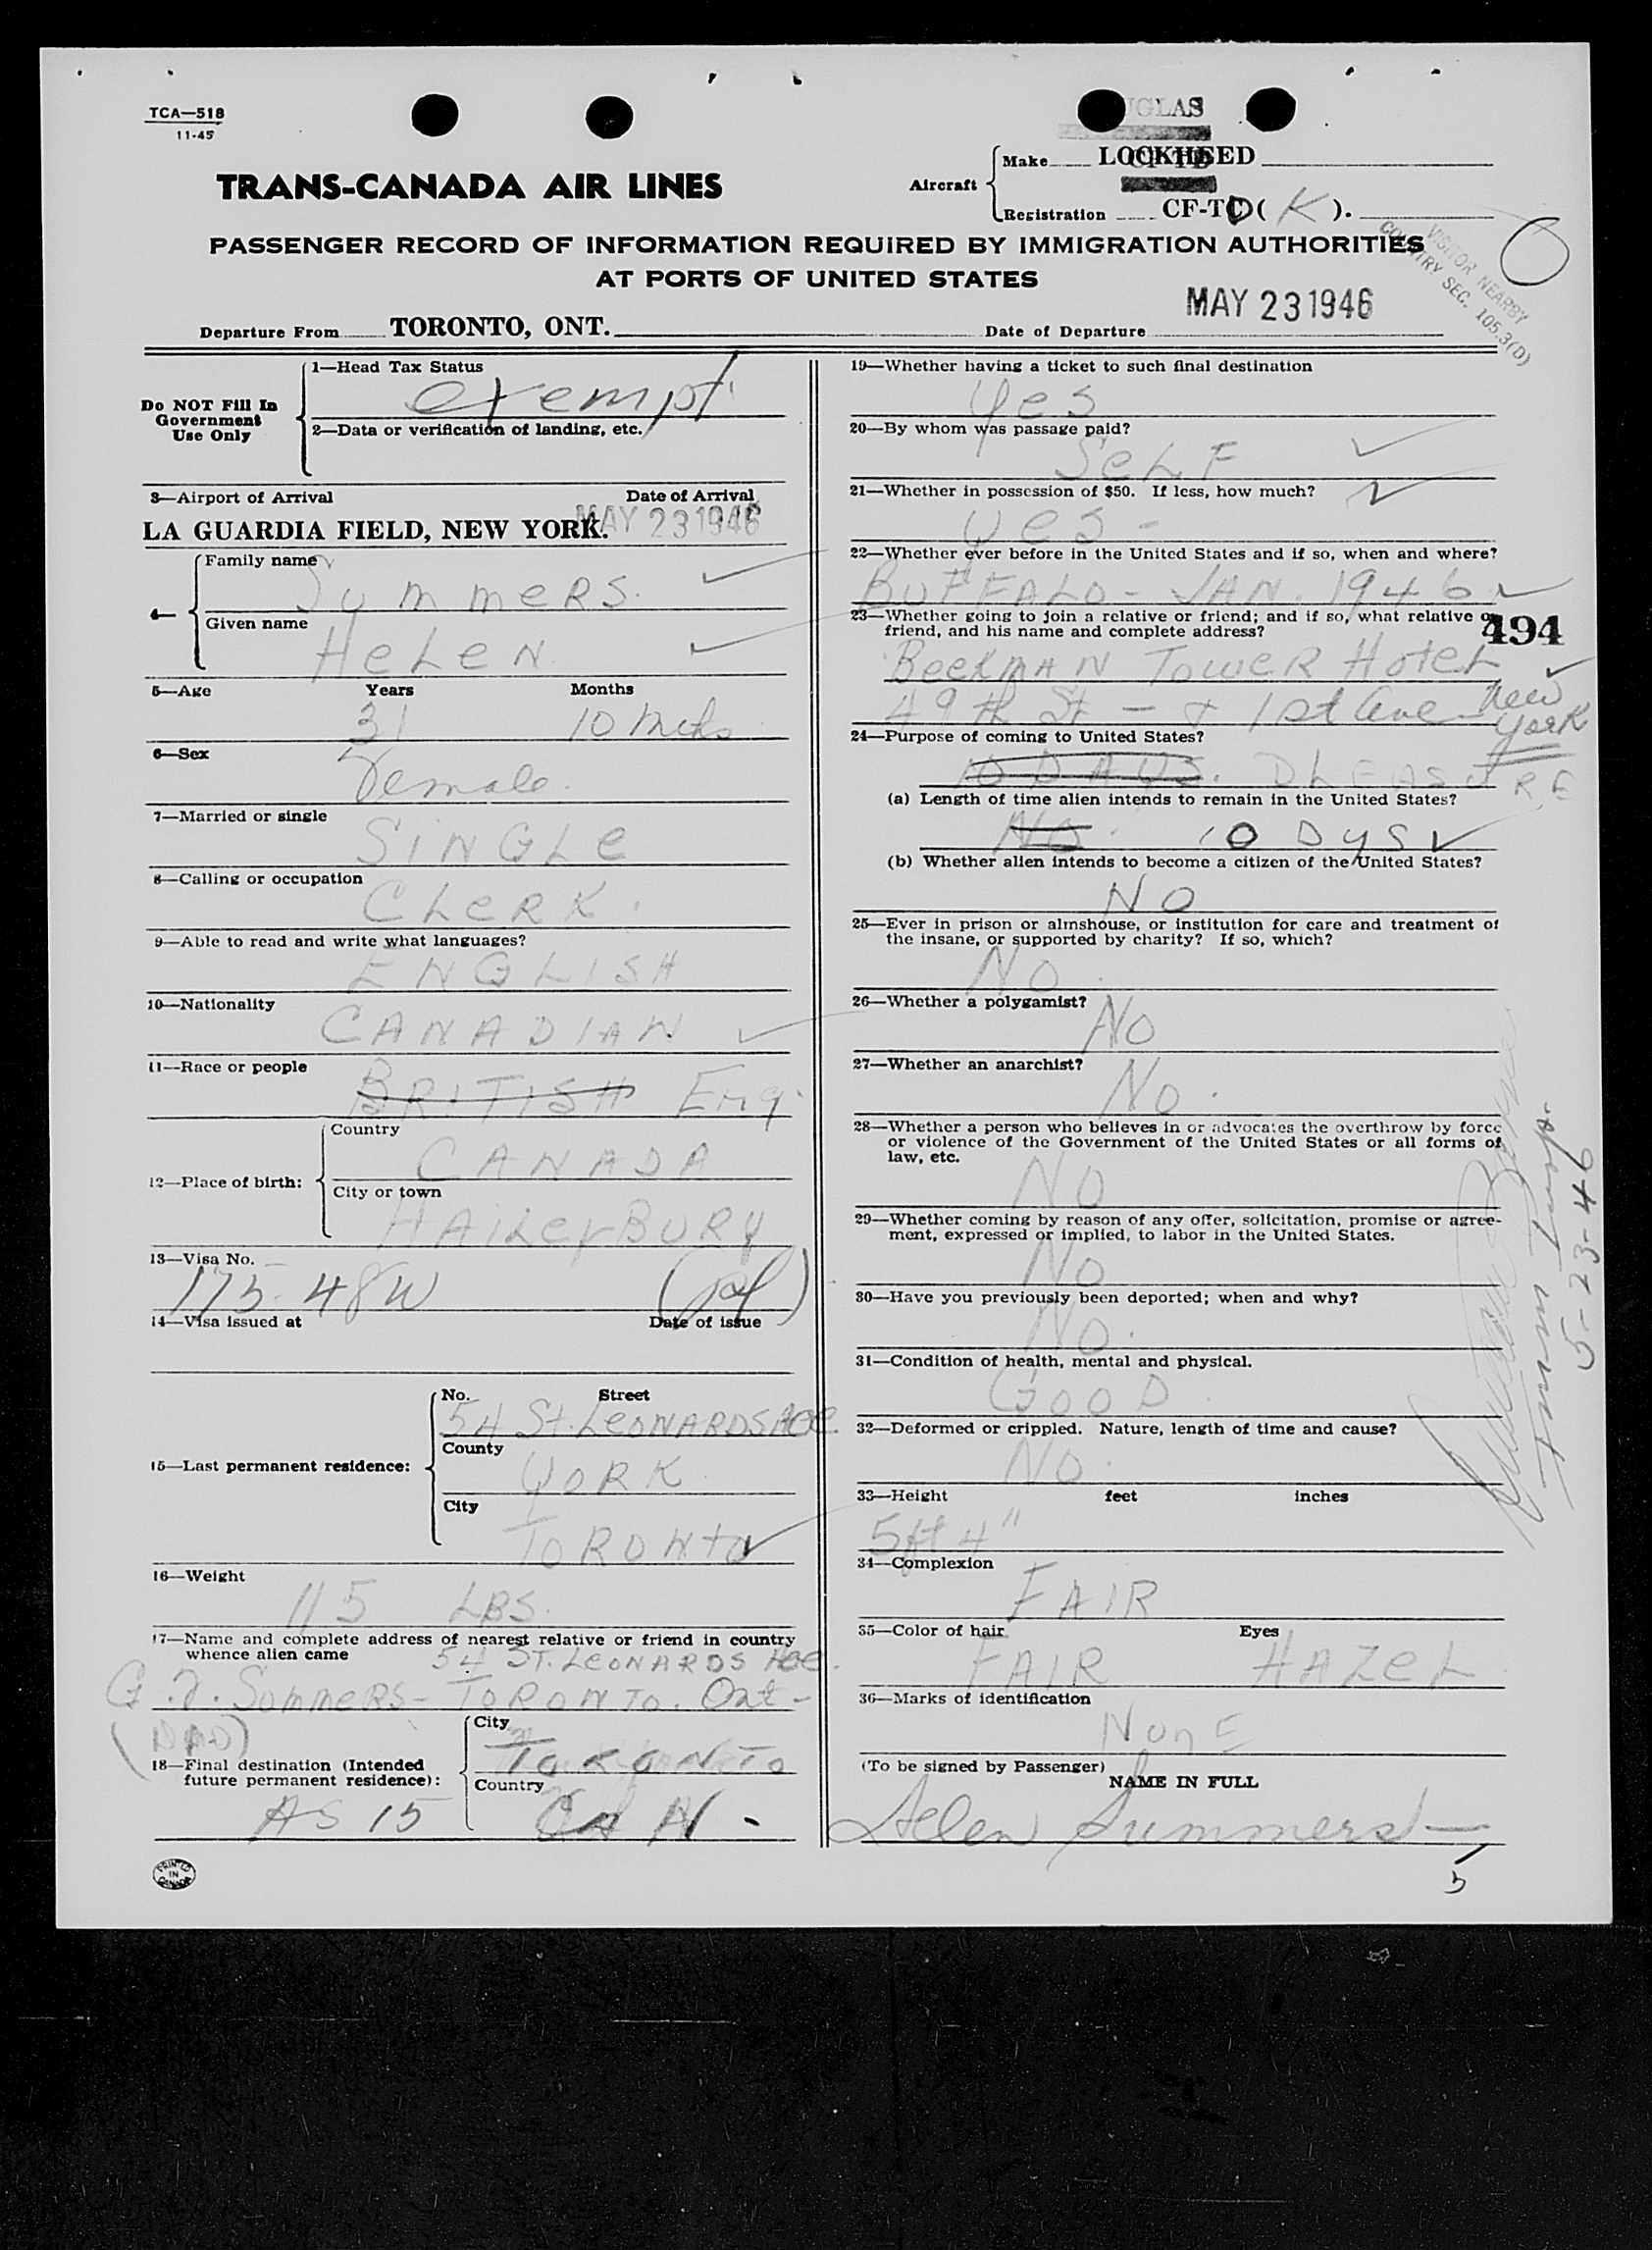 TCA—518
11-45
TRANS-CANADA AIR LINES
Aircraft
Make LOCKHEED
Registration CF-TC ( K ).
PASSENGER RECORD OF INFORMATION REQUIRED BY IMMIGRATION AUTHORITIES
AT PORTS OF UNITED STATES
VISITOR NEARBY
COUNTRY SEC. 105.3(D)
Departure From TORONTO, ONT.
Date of Departure MAY 23 1946
Do NOT Fill In
Government
Use Only
1—Head Tax Status
exempt
2—Data or verification of landing, etc.
3—Airport of Arrival Date of Arrival
LA GUARDIA FIELD, NEW YORK. MAY 23 1946
4—
Family name
Summers.
Given name
HeLeN
5—Age Years Months
31 10 Mths
6—Sex
Female.
7—Married or single
SiNGLe
8—Calling or occupation
CLeRK.
9—Able to read and write what languages?
ENGLISH
10—Nationality
CANADIAN
11—Race or people
BRITISH Eng.
12—Place of birth:
Country
CANADA
City or town
HAiLeyBURy
13—Visa No.
175.48W
14—Visa issued at Date of issue
15—Last permanent residence:
No. Street
54 St. LeONARDS Ave.
County
YORK
City
TORONto
16—Weight
115 LBS.
17—Name and complete address of nearest relative or friend in country
whence alien came
54 ST. LeONARDS Ave.
Summers - TORONTO. Ont -
(DAD)
18—Final destination (Intended
future permanent residence):
AS 15
City
TORONTO
Country
CAN -
PRINTED
IN
CANADA
19—Whether having a ticket to such final destination
Yes
20—By whom was passage paid?
SeLF
21—Whether in possession of $50. If less, how much?
Yes -
22—Whether ever before in the United States and if so, when and where?
BUFFALO - JAN. 1946
23—Whether going to join a relative or friend; and if so, what relative or
friend, and his name and complete address?
494
BeeKMAN TOWeR HoteL
49th St - + 1st Ave - New
York
24—Purpose of coming to United States?
10 DAYS. PLEASURE
(a) Length of time alien intends to remain in the United States?
No. 10 DYS
(b) Whether alien intends to become a citizen of the United States?
NO
25—Ever in prison or almshouse, or institution for care and treatment of
the insane, or supported by charity? If so, which?
NO.
26—Whether a polygamist?
NO
27—Whether an anarchist?
No.
28—Whether a person who believes in or advocates the overthrow by force
or violence of the Government of the United States or all forms of
law, etc.
NO
29—Whether coming by reason of any offer, solicitation, promise or agree-
ment, expressed or implied, to labor in the United States.
No
30—Have you previously been deported; when and why?
No.
31—Condition of health, mental and physical.
GOOD.
32—Deformed or crippled. Nature, length of time and cause?
No.
33—Height feet inches
5ft 4"
34—Complexion
FAIR
35—Color of hair Eyes
FAIR HAZeL
36—Marks of identification
NonE
(To be signed by Passenger)
NAME IN FULL
Helen Summers —
Imm Insp.
5-23-46
5